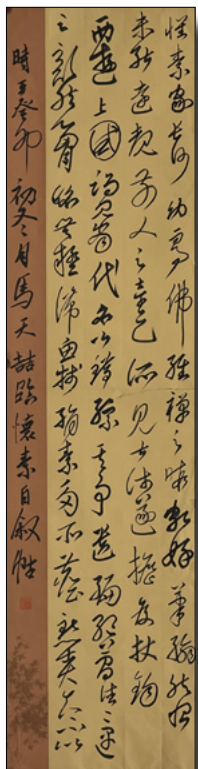 懷素家長沙幼而事佛經禪之暇頗好筆翰然恨
未能遠覩前人之奇迹所見甚淺遂擔笈杖錫
西遊上國謁見當代名公錯綜其事遺編絕簡往往遇
之豁然心胸略無疑滯魚箋絹素多所塵點士大夫不以
時在癸卯初冬之月馬天喆臨懷素自叙帖